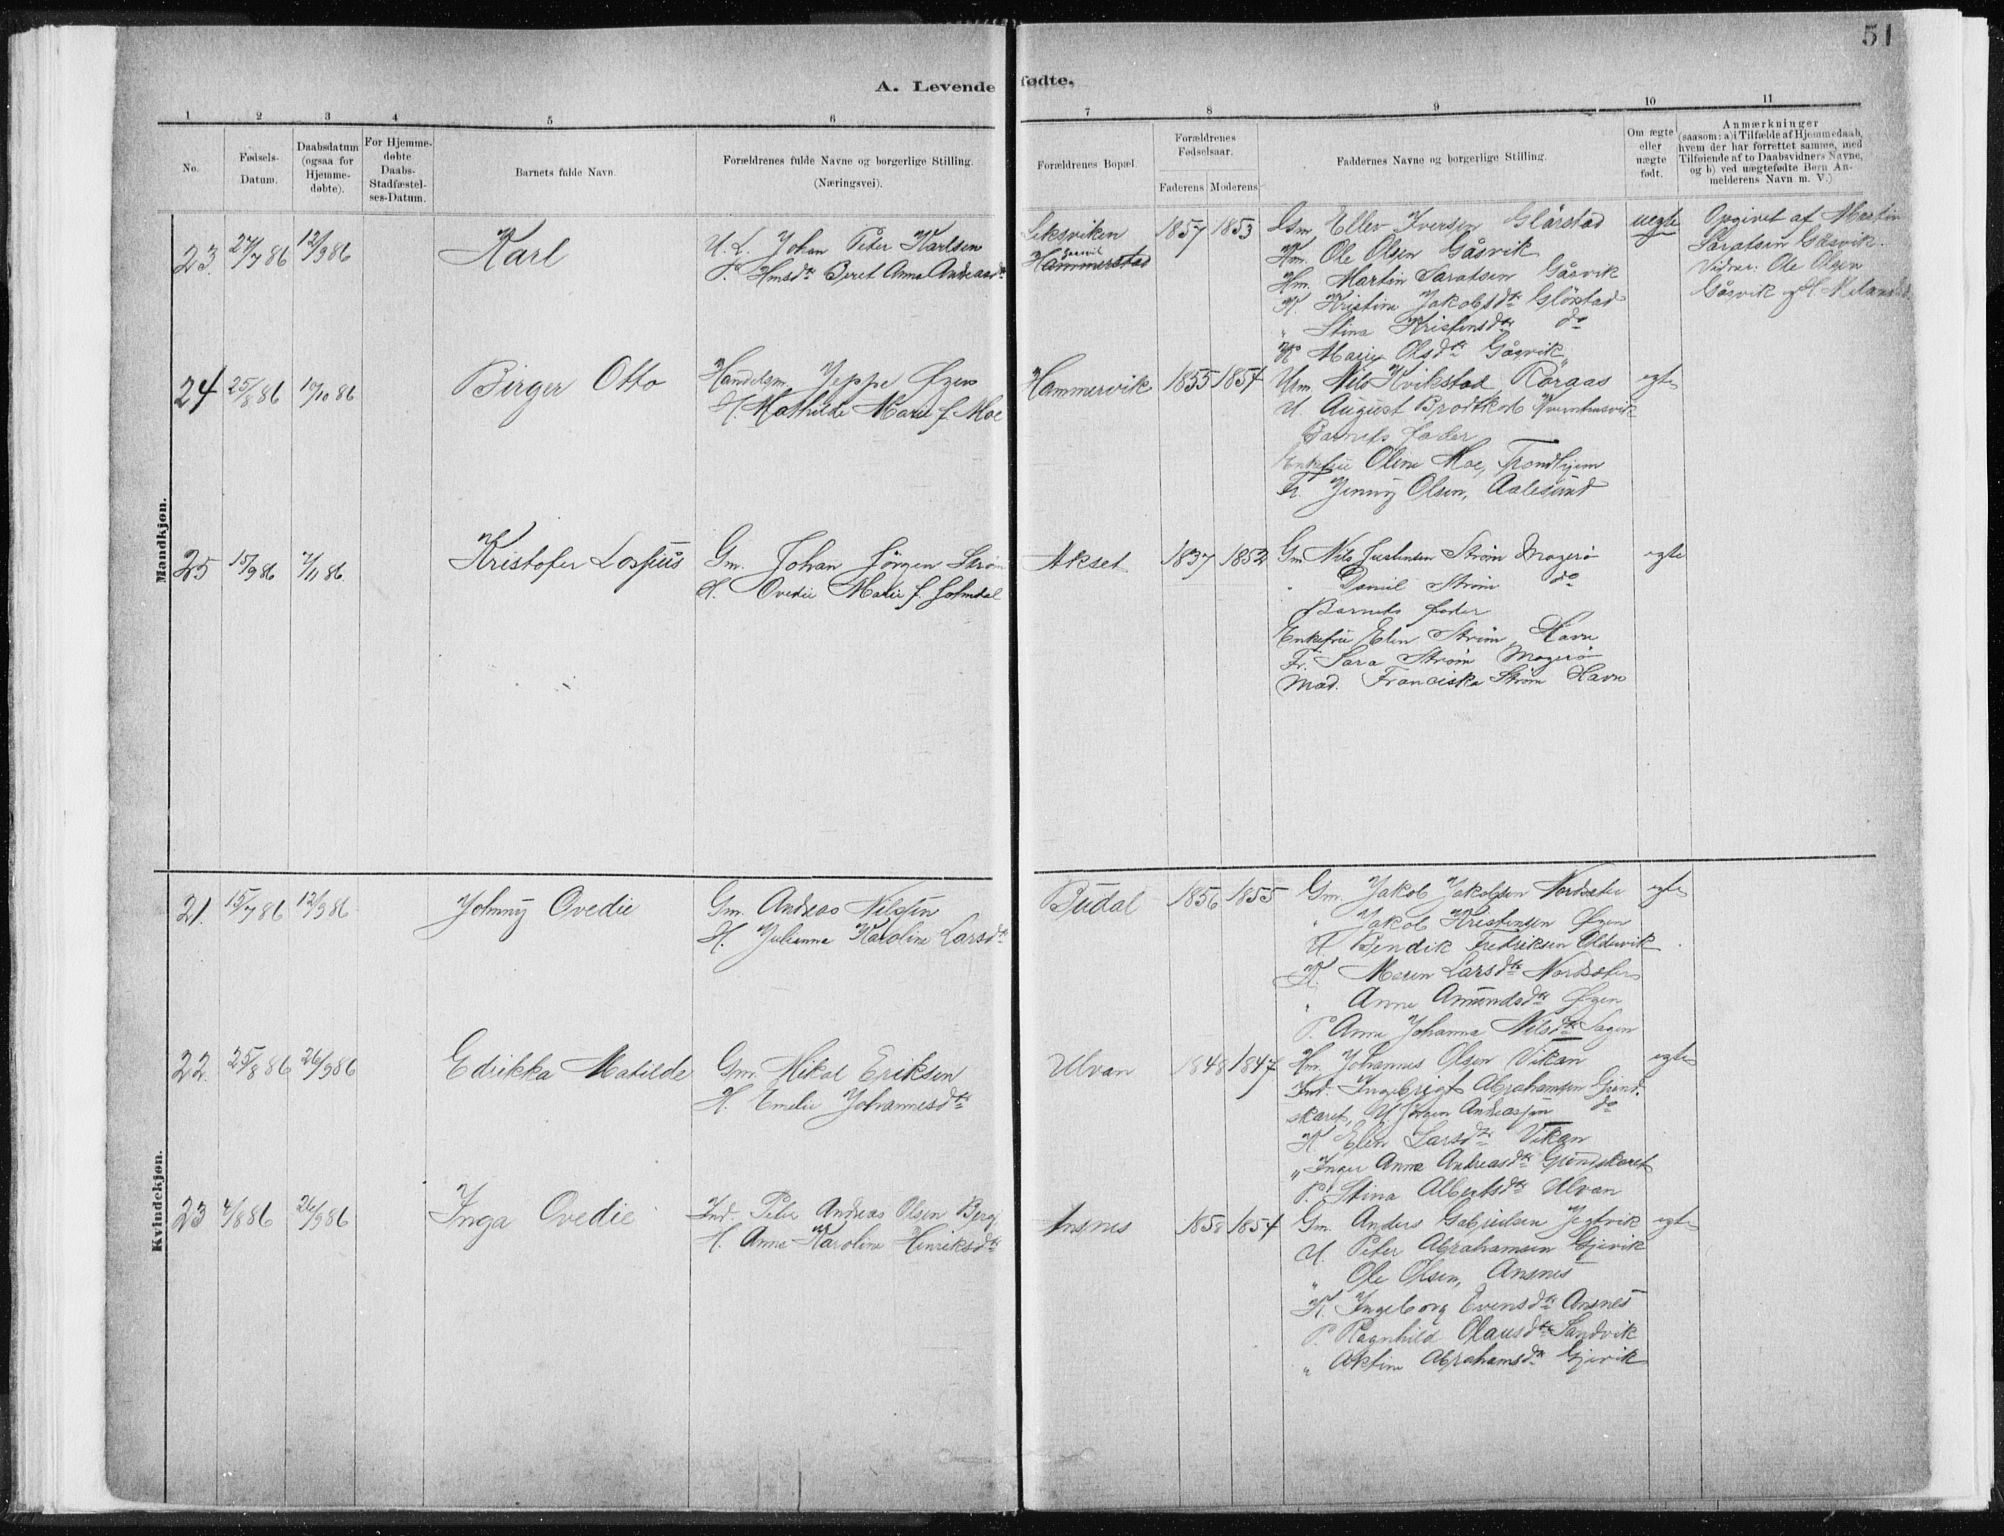 51
A. Levende fødte.
1 2 3 4 5 6 7 8 9 10 11
No.
Fødsels-
Datum.
Daabsdatum
(ogsaa for
Hjemme-
døbte).
For Hjemme-
døbte
Daabs-
Stadfæstel-
ses-Datum.
Barnets fulde Navn.
Forældrenes fulde Navne og borgerlige Stilling.
(Næringsvei).
Forældrenes Bopæl.
Forældrenes
Fødselsaar.
Faderens Moderens
Faddernes Navne og borgerlige Stilling.
Om ægte
eller
uægte
født.
Anmærkninger
(saasom: a) i Tilfælde af Hjemmedaab,
hvem der har forrettet samme, med
Tilføiende af to Daabsvidners Navne,
og b) ved uægtefødte Børn An-
melderens Navn m. V.)
Mandkjøn.
23. 27/7 86 12/9 86 Karl
U. L. Johan Peter Karlsen
P. Hmsdtr Beret Anna Andreasdtr
Leksviken
Gaasvik
Hammerstad
1857 1853
Gm Ellev Iversen Glørstad
Hm. Ole Olsen Gåsvik
Hm. Martin Saratsen Gåsvik
K. Kristine Jakobsdtr Glørstad
" Stina Kristensdtr do
K Marie Olsdtr Gåsvik
uegte
Opgivet af Martin
Saratsen Gåsvik.
Vidner: Ole Olsen
Gåsvik og
24 25/8 86 10/10 86 Birger Otto
Handelsm. Jeppe Øzen
H. Mathilde Marie f. Moe
Hammervik 1855 1854
Um. Nils Kvikstad Röraas
U. August Brodtkorb Kvernhusvik
Barnets fader
Enkefru Oline Moe, Trondhjem
Fr. Jenny Olsen, Aalesund
egte
25 15/9 86 7/11 86 Kristofer Lossius
Gm. Johan Jörgen Strøm
H. Ovedie Marie f. Holmdal
Akset 1837 1852
Gm Nils Justinsen Strøm Magerø
" Daniel Strøm do
Barnets fader
Enkefru Elen Strøm, Havn
Fr. Sara Strøm Magerø
Mad. Franciska Strøm Havn
egte
Kvindekjøn.
21. 15/7 86 12/9 86 Johnny Ovedie
Gm. Andreas Nilssen
H. Julianna Karoline Larsdtr
Budal 1856 1855
Gm. Jakob Jakobsen Nordsæter
" Jakob Kristensen Øzen
U Bendik Fredriksen Oldervik
K. Maren Larsdtr Nordsæter
" Anne Amundsdtr Øzen
P. Anne Johanna Nilsdtr Sagen
egte
22. 25/8 86 26/9 86 Edikka Matilde
Gm. Mikal Eriksen
H. Emelie Johannesdtr
Ulvan 1848 1847
Hm. Johannes Olsen Vikan
Ind. Ingebrigt Abrahamsen Grind-
skaret, U Jörgen Andreassen do
K Elen Larsdtr Vikan
" Inger Anna Andreasdtr Grindskaret
P. Stina Albertsdtr Ulvan
egte
23 4/8 86 26/9 86 Inga Ovedie
Ind. Peter Andreas Olsen Berg
H. Anna Karoline Henriksdtr
Ansnes 1858 1854
Gm. Anders Gabrielsen Jegtvik
U. Peter Abrahamsen Gjevik
" Ole Olsen, Ansnes
K Ingeborg Evensdtr Ansnes
P. Ragnhild Olausdtr Sandvik
" Aktine Abrahamsdtr Gjevik
egte